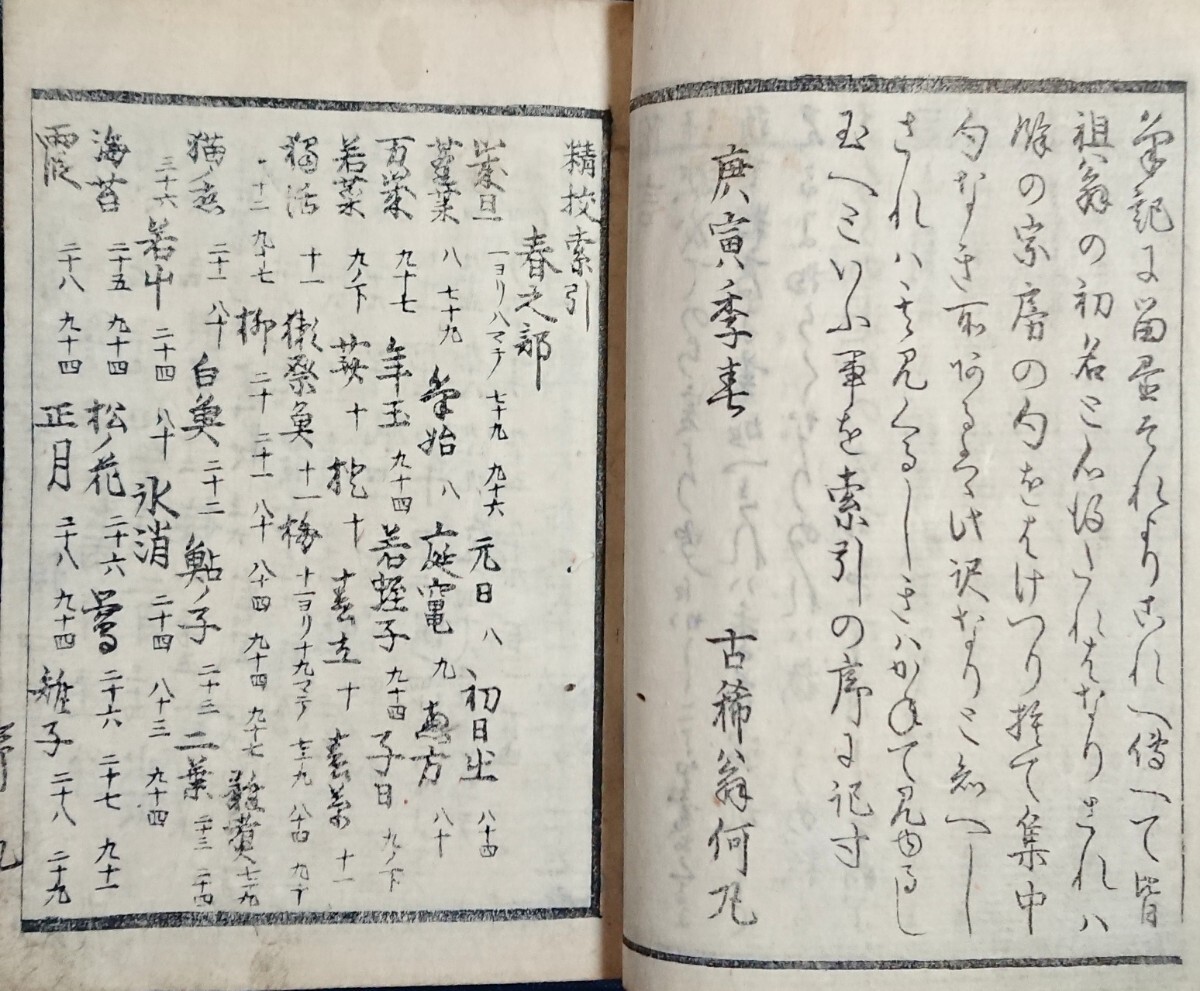 筆記に留量それよりこれへ傳へて皆
祖翁の初名と心得たれはなりされハ
餘の宗房の句をはけつり捨て集中
句なき所あるハ此訳なりと知へし
されハ見くるしきハかねて見ゆるし
玉へといふ事を索引の序に記す
庚寅季春 古稀翁何丸
精挍索引
春之部
歳旦 一ヨリ八マテ 七十九 九十六 元日 八 初日出 八十四
蓬莱 八 七十九 筆始 八 庭竃 九 恵方 八十
万歳 九十七 年玉 九十四 若蛭子 九十四 子日 九ノ下
若菜 九ノ下 薺 十 十 春立 十 十一
獨活 十一 獺祭魚 十一 梅 十一ヨリ十九マテ 七十九 八十四 九十
十二 九十七 柳 二十 二十一 八十 八十四 九十四 九十七
猫ノ恋 二十一 八十 白魚 二十二 鮎ノ子 二十三 二葉 二十三 二十四
三十六 若艸 二十四 八十 氷消 二十四 八十三 九十四
海苔 二十五 九十四 松ノ花 二十六 鶯 二十六 二十七 九十一
霞 二十八 九十四 正月 二十八 九十四 雉子 二十八 二十九